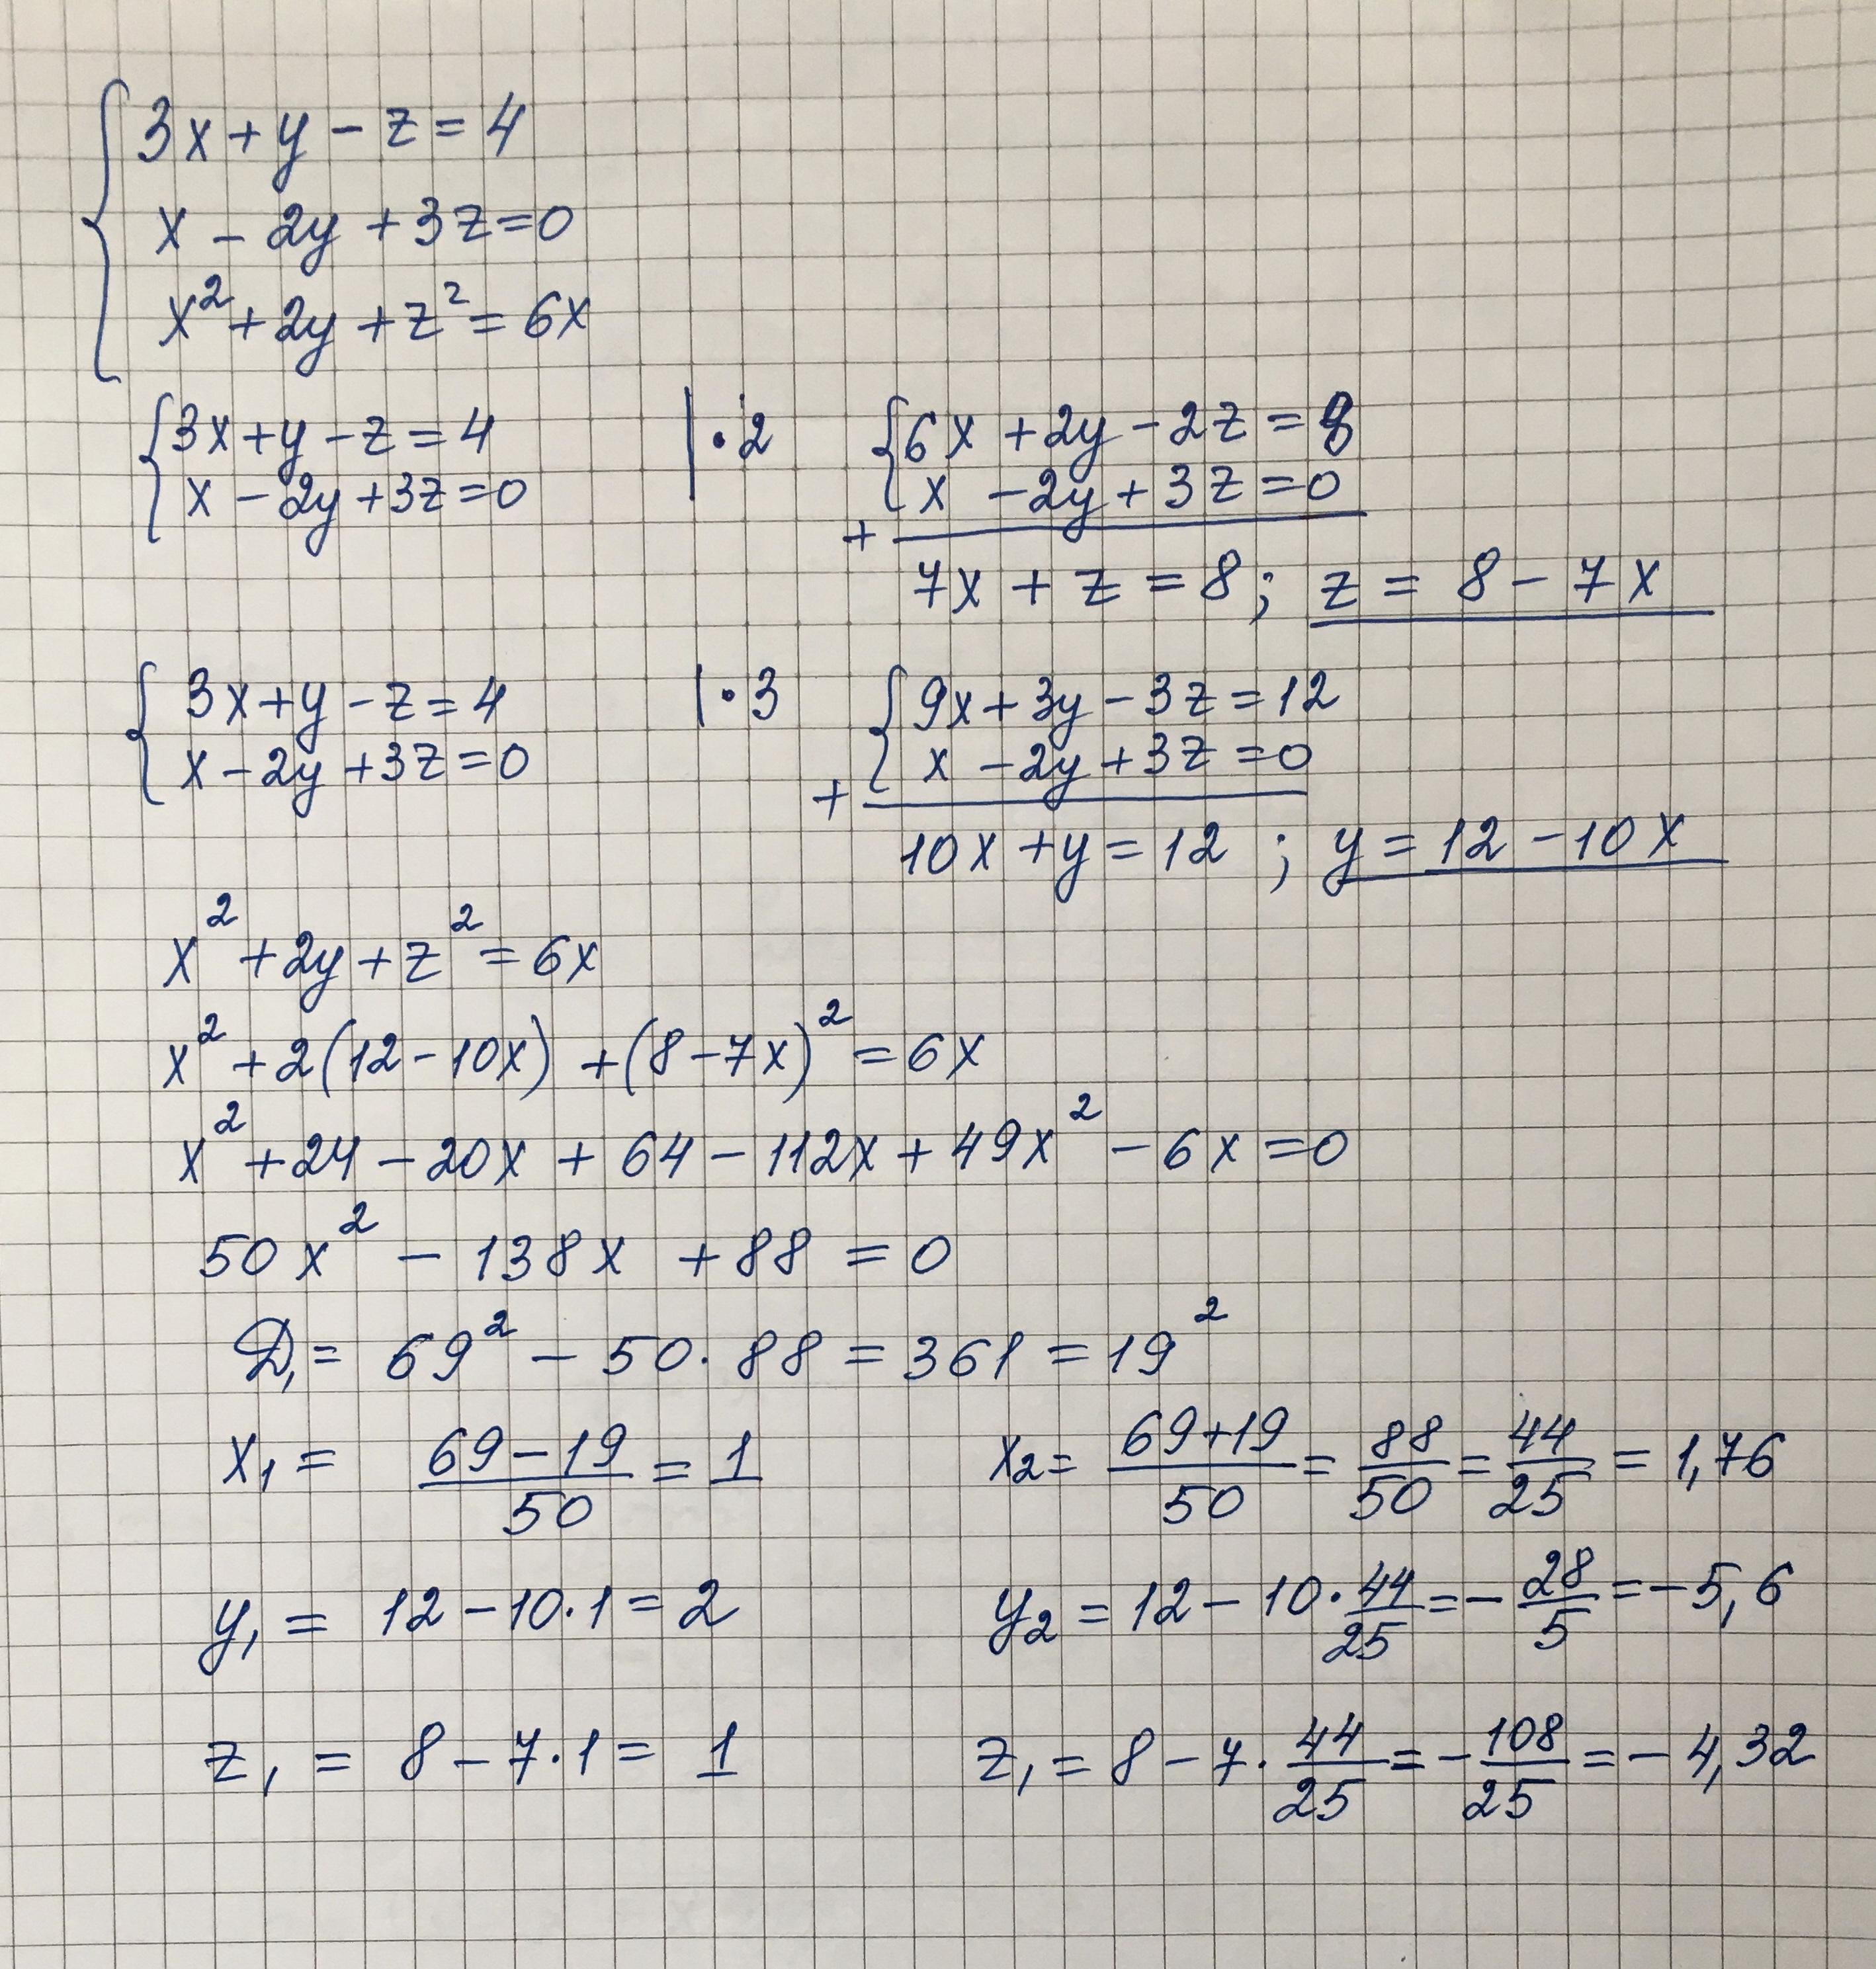 3x + y - z = 4
x - 2y + 3z = 0
x² + 2y + z² = 6x
3x + y - z = 4 | · 2 6x + 2y - 2z = 8
x - 2y + 3z = 0 x - 2y + 3z = 0
+ 7x + z = 8 ; z = 8 - 7x
3x + y - z = 4 | · 3 9x + 3y - 3z = 12
x - 2y + 3z = 0 x - 2y + 3z = 0
+ 10x + y = 12 ; y = 12 - 10x
x² + 2y + z² = 6x
x² + 2(12 - 10x) + (8 - 7x)² = 6x
x² + 24 - 20x + 64 - 112x + 49x² - 6x = 0
50x² - 138x + 88 = 0
D₁ = 69² - 50 · 88 = 361 = 19²
x₁ = (69 - 19)/50 = 1 x₂ = (69 + 19)/50 = 88/50 = 44/25 = 1,76
y₁ = 12 - 10 · 1 = 2 y₂ = 12 - 10 · 44/25 = - 28/5 = - 5,6
z₁ = 8 - 7 · 1 = 1 z₁ = 8 - 7 · 44/25 = - 108/25 = - 4,32